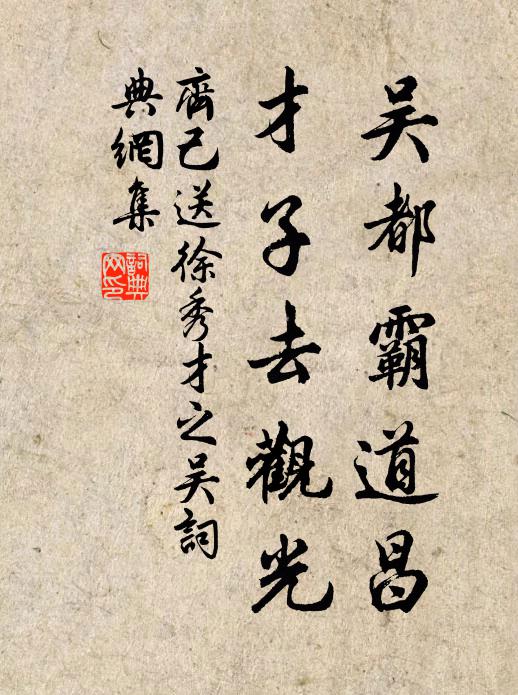 吴都霸道昌
才子去觀光
齊己送徐秀才之吴詞
典網集
詞典
网印